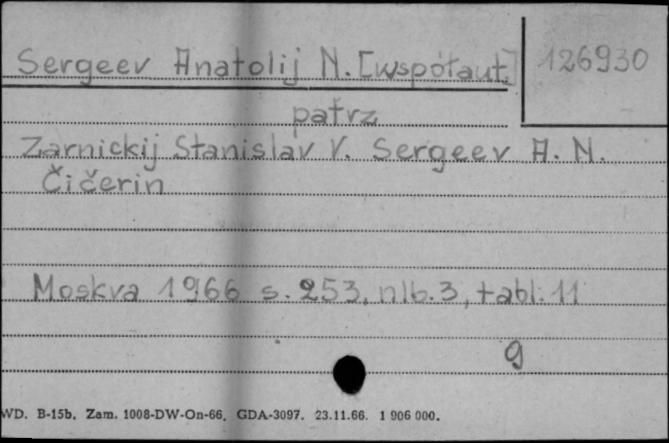 Sergeev Anatolij N. [współaut.]
126930
patrz
Zarnickij Stanislav V. Sergeev A. N.
Čičerin
Moskva 1966 s. 253, nlb. 3, tabl. 11
9
WD. B-15b. Zam. 1008-DW-On-66. GDA-3097. 23.11.66. 1 906 000.